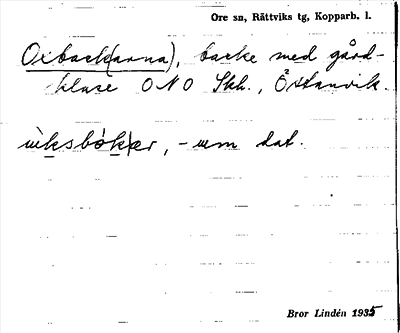 Ore sn, Rättviks tg, Kopparb. l.
Oxback(arna), backe med gård-
klase ONO Skh., Östanvik.
-um dat.
Bror Lindén 1935